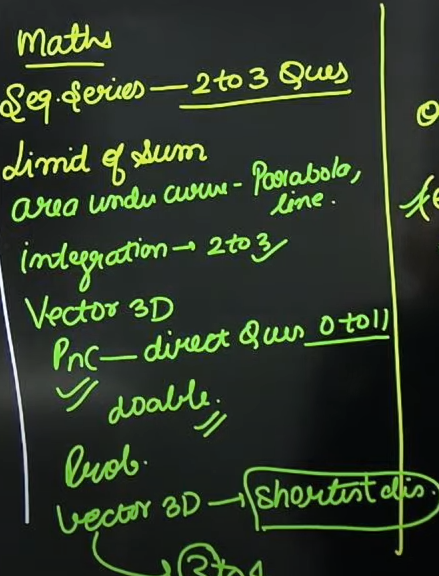 Maths
Seq. Series — 2 to 3 Ques
Limid of Sum
area undu curve - Parabola,
line.
integration → 2 to 3
Vector 3D
PnC — direct Ques 0 to 11
doable.
Prob.
Vector 3D → Shortest dis.